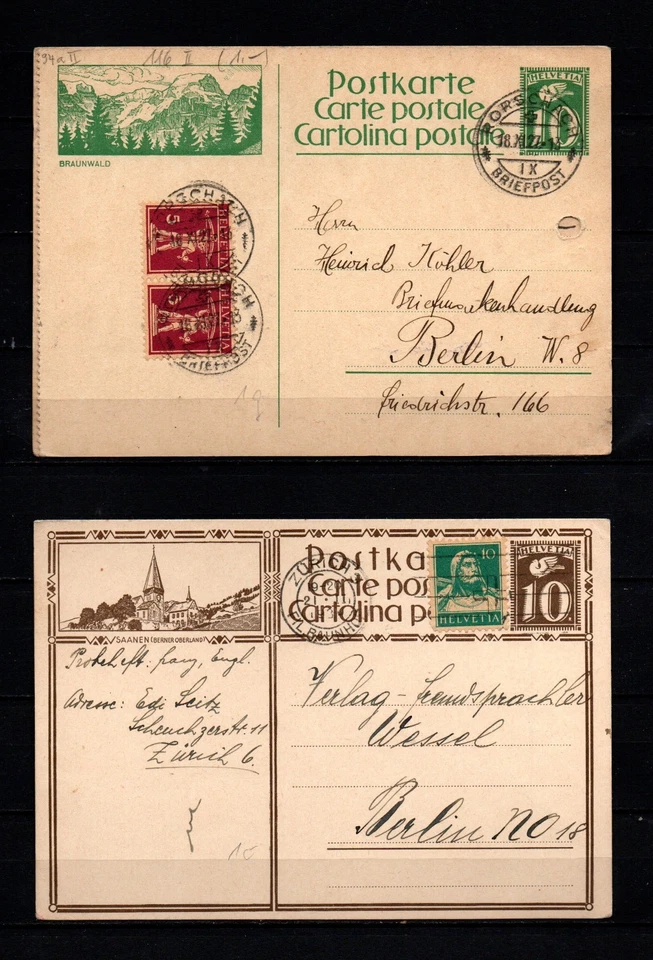 94a II 116 II (1.-)
Postkarte
Carte postale
Cartolina postale
HELVETIA
10
RORSCHACH
18.XI.27
IX
BRIEFPOST
BRAUNWALD
5
HELVETIA
HELVETIA
BRIEFPOST
Herrn
Heinrich Köhler
Briefmarkenhandlung
Berlin W. 8
Friedrichstr. 166
Postka
Carte pos
Cartolina p
10
HELVETIA
HELVETIA
10
ZÜRICH
SAANEN (BERNER OBERLAND)
Probeheft: franz, Engl.
Adresse: Edi Seitz
Scheuchzerstr. 11
Zürich 6.
Verlag - fremdsprachler
Wessel
Berlin NO 18